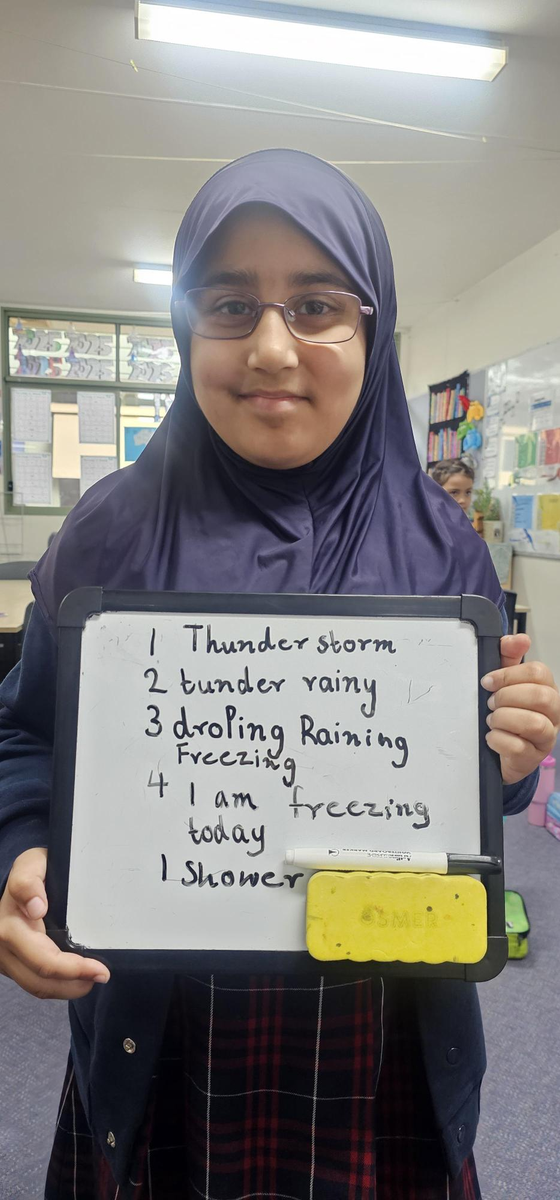 1 Thunder storm
2 tunder rainy
3 droPing Raining
Freezing
4 I am freezing
today
1 Shower
OSMER